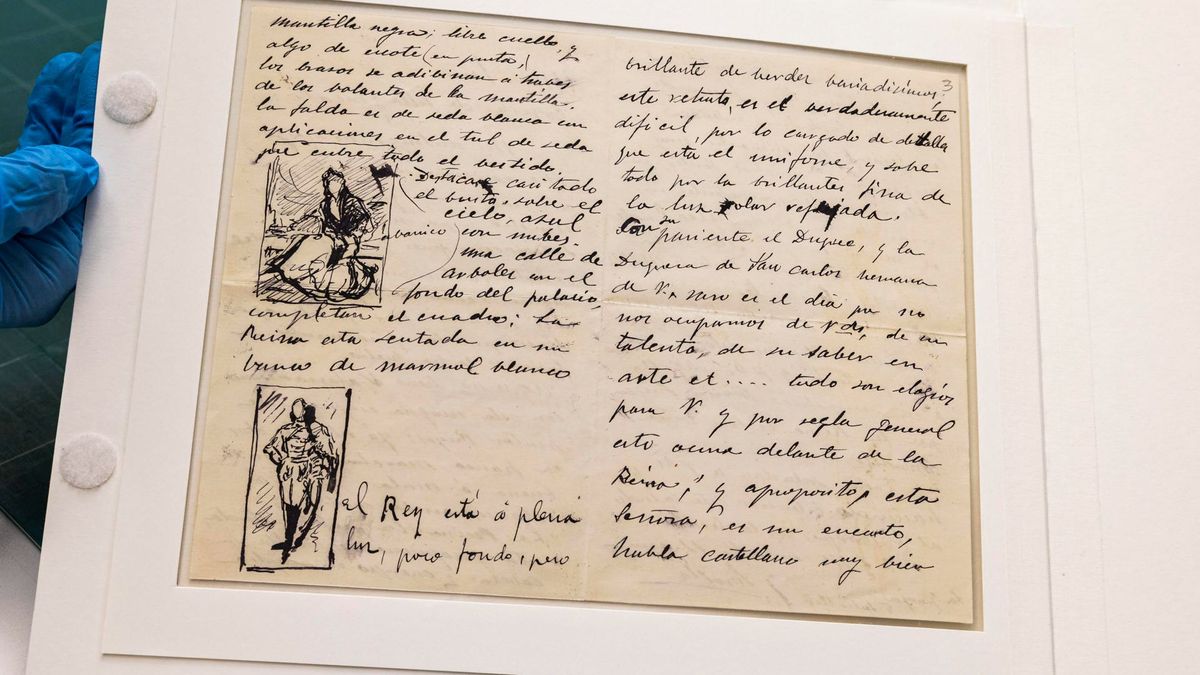 mantilla negra; libre cuello, y
algo de escote (en punta,)
los brasos se adibinan a trabes
de los bolantes de la mantilla.
la falda es de seda blanca con
aplicaciones en el tul de seda
que cubre todo el bestido.
Destacase casi todo
el busto, sobre el
cielo, azul
abanico
con nubes.
una calle de
arboles con el
fondo del palacio,
completan el cuadro; La
Reina esta sentada en un
banco de marmol blanco
El Rey está á plena
luz, poco fondo, pero
3
brillante de berdes bariadisimos;
este retrato, es el verdaderamente
dificil, por lo cargado de detalles
que esta el uniforme, y sobre
todo por la brillantes fina de
la luz solar reflejada.
Con su pariente el Duque, y la
Duquesa de San Carlos hermana
de V., raro es el dia que no
nos ocupamos de Vds, de su
talento, de su saber en
arte et.... todo son elogios
para V. y por regla general
esto ocurre delante de la
Reina; y aproposito, esta
Señora, es un encanto,
habla castellano muy bien